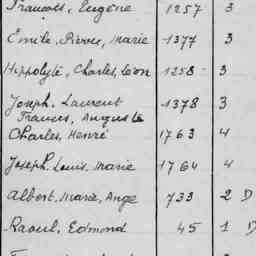 François, Eugène 1257 3
Emile, Pierre, Marie 1377 3
Hippolyte, Charles, Léon 1258 3
Joseph, Laurent 1378 3
Francis, Auguste
Charles, Henré 1763 4
Joseph, Louis, Marie 1764 4
Albert, Marie, Ange 733 2 D
Raoul, Edmond 45 1 D